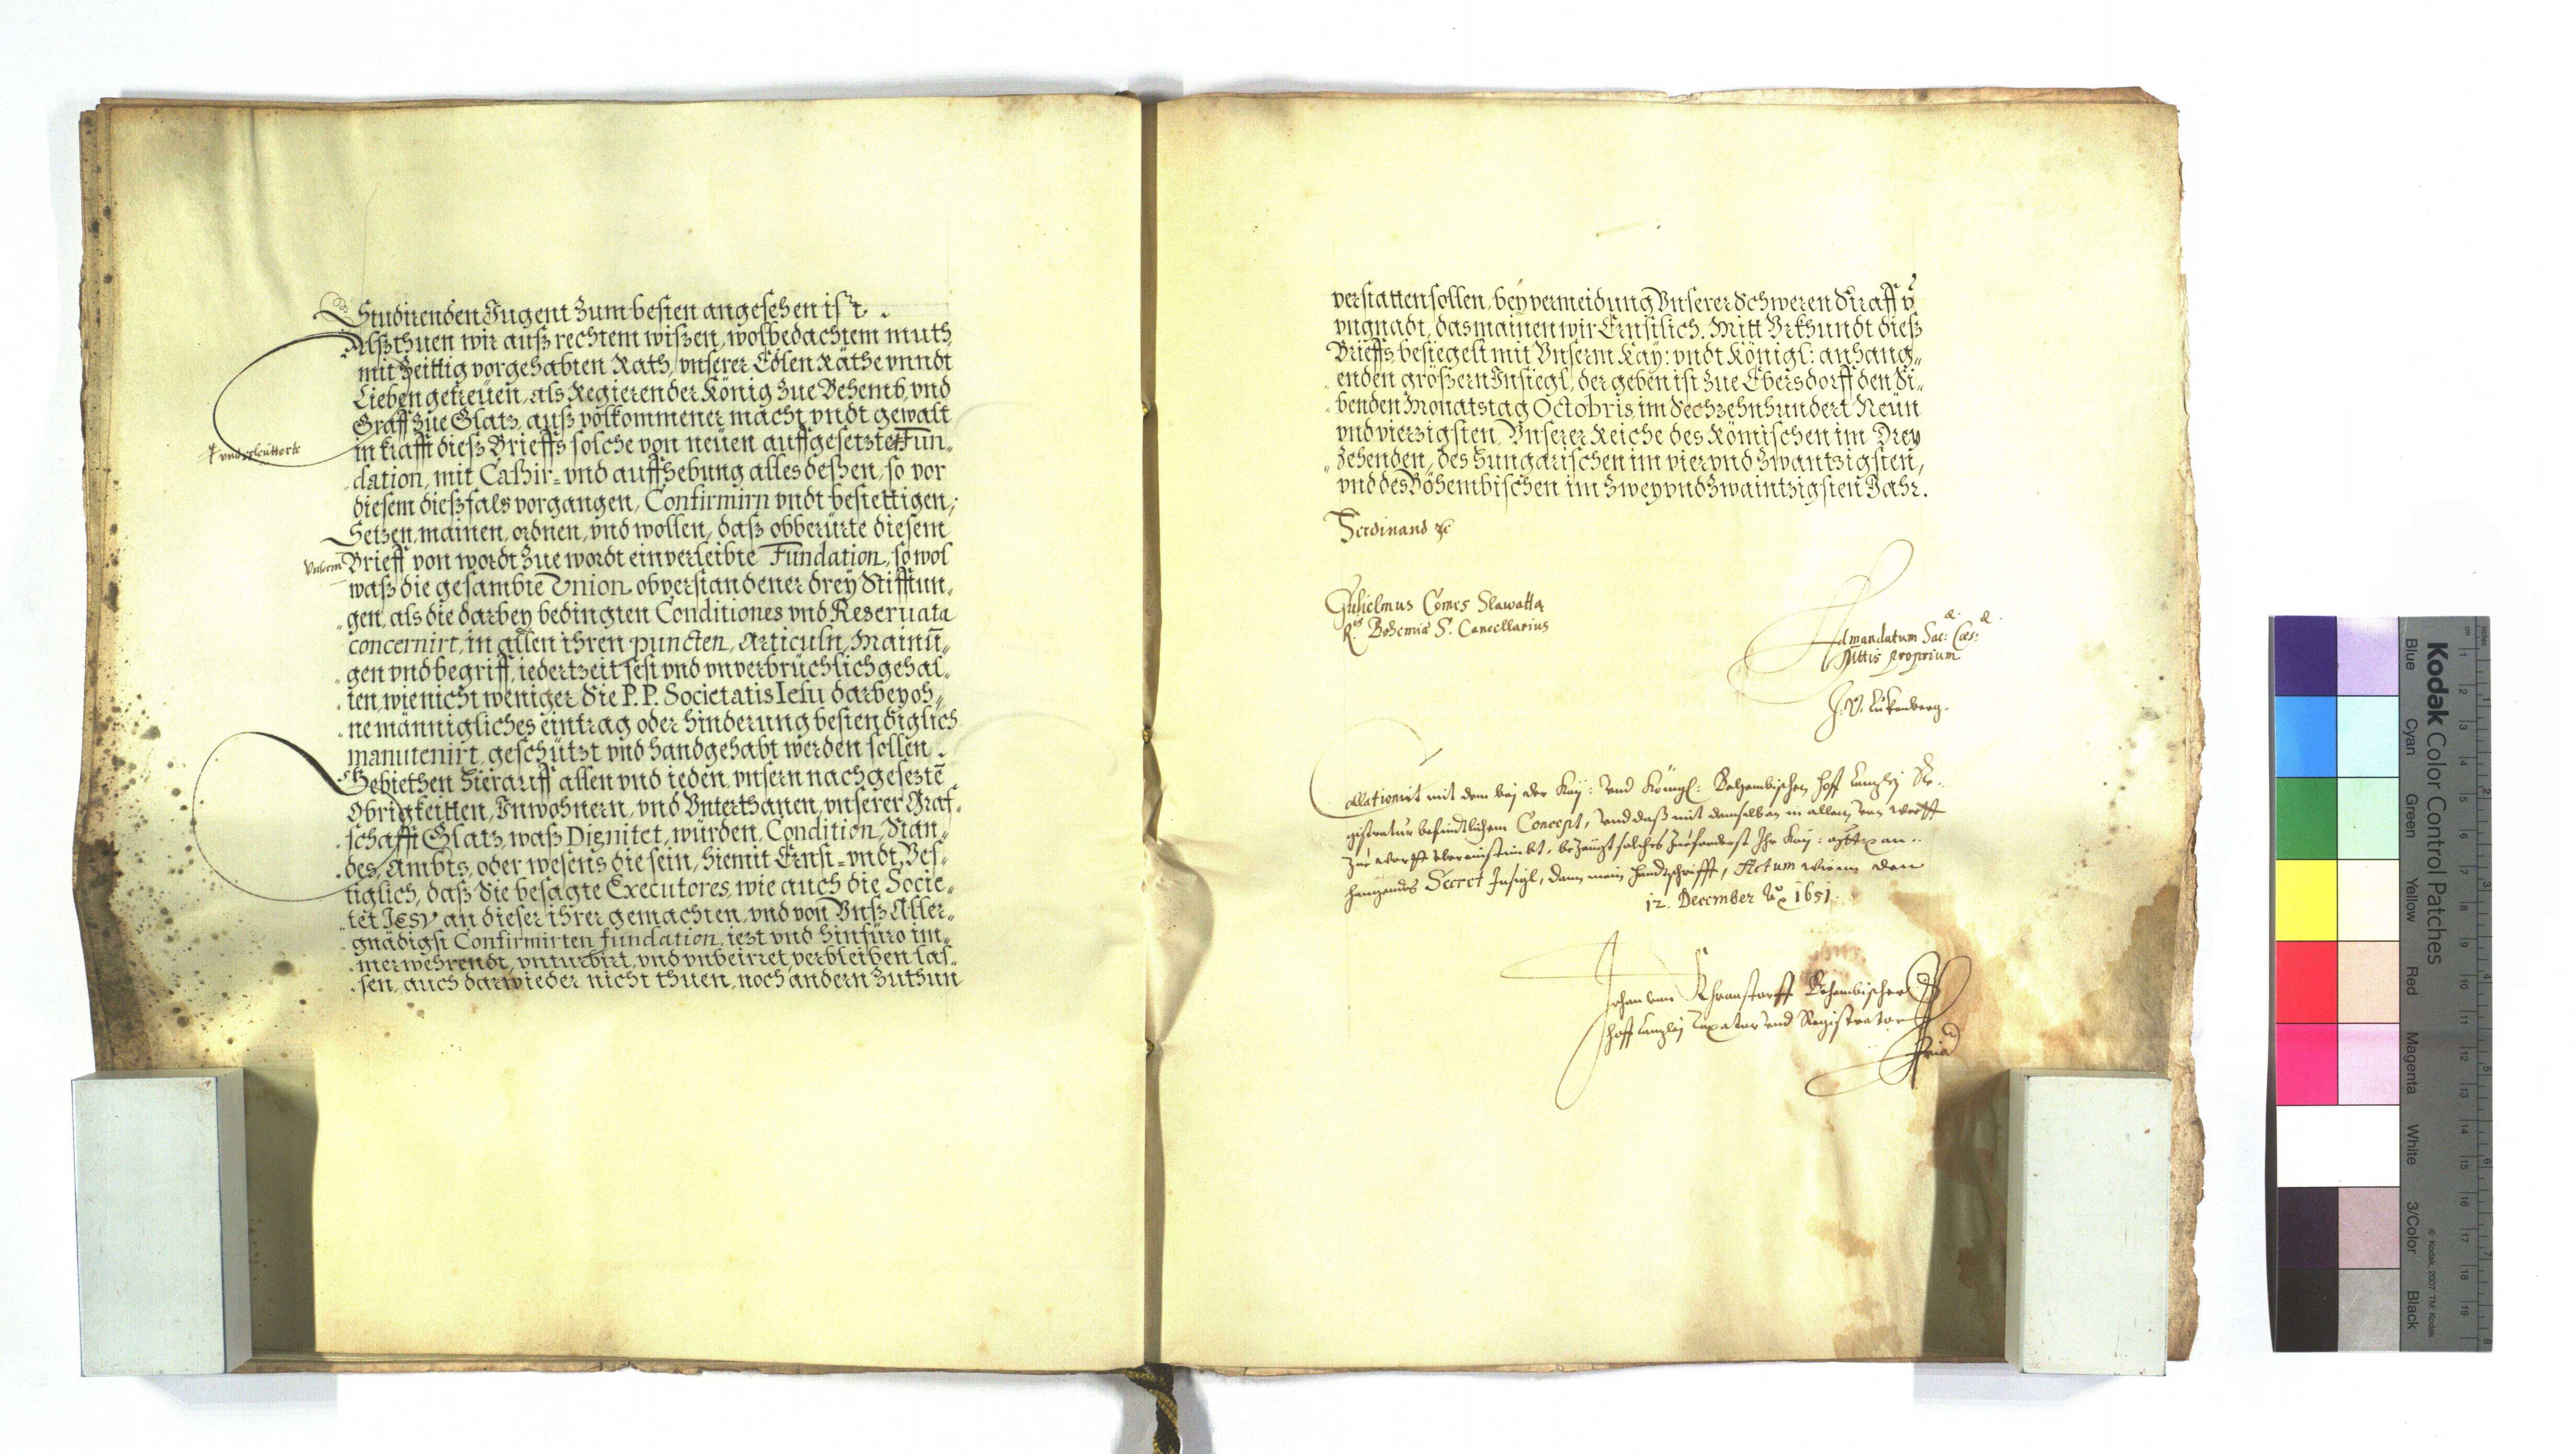 Studirenden Jugent zum besten angesehen ist.
Alß thuen wir auß rechtem wißen, wolbedachtem muth,
mit zeittig vorgehabten Rath, vnserer Edlen Räthe vnndt
Lieben getreüen, als Regierender König zue Behemb, vnd
Graff zue Glatz, auß volkommener macht vndt gewalt
in krafft dieß Brieffs solche von neüen auffgesetzte Fun„
vnd erleutterte
dation, mit Caßir= vnd auffhebung alles deßen, so vor
diesem dießfals vorgangen, Confirmirn vndt bestettigen,
Setzen, mainen, ordnen, vnd wollen, daß obberürte diesem
Vnserm Brieff von wordt zue wordt einverleibte Fundation, so wol
waß die gesambte Union obverstandener drey Stifftun„
gen, als die darbey bedingten Conditiones vnd Reseruata
concernirt, in allen ihren puncten, Articuln, Mainū„
gen vnd begriff, iedertzeit fest vnd vnverbrüchlich gehal„
ten, wie nicht weniger die P.P. Societatis Iesu darbey oh„
ne männigliches eintrag oder hinderung bestendiglich
manutenirt, geschützt vnd handgehabt werden sollen.
Gebiethen hierauff allen vnd ieden, vnsern nachgesezte
Obrigkeitten, Inwohnern, vnd Vnterthanen, vnserer Graf„
schafft Glatz, waß Dignitet, würden, Condition, Stan„
des, Ambts, oder wesens die sein, hiemit Ernst= vndt Ves„
tiglich, daß die besagte Executores, wie auch die Socie„
tet Jesv an dieser ihrer gemachten, vnd von Vnß Aller„
gnädigst Confirmirten fundation, iezt vnd hinfüro im„
merwehrendt, vnturbirt, vnd vnbeirret, verbleiben las„
sen, auch darwieder nicht thuen, noch andern zuthun
verstatten sollen, bey vermeidung Vnserer Schweren Straff v̄
vngnadt, das mainen wir Ernstlich. Mitt Vrkhundt dieß
Brieffs besiegelt mit Vnserm Kay: vndt Königl: anhang„
enden größern Insiegl, der geben ist zue Ebersdorff den Si„
benden Monatstag Octobris, im Sechzehnhundert Neün
vnd vierzigsten, Vnserer Reiche des Römischen im Drey
zehenden, des Hungarischen im vier vnd zwantzigsten,
vnd des Böhembischen im zwey vnd zwaintzigsten Jahr.
Ferdinand
Gulielmus Comes Slawatta
R.is Bohemiæ S. Cancellarius
Ad mandatum Sac: Cæs:
Mttis proprium
Collationirt mit dem bey der Kay: vnd Königl: Behembischen Hoff Cantzley Re„
gistratur befindtlichem Concept, vnd daß mit demselben in allem von wortt
zue wortt übereinstimbt, bezeugt solches zuforderst Ihr Kay: Mtt an„
hangendes Secret Insigl, dann mein Handtschrifft, Actum Wienn den
12. December Ao 1651.
Johan von Behembischer
Hoff Cantzley Taxator vnd Registrator
Kodak Color Control Patches
Blue Cyan Green Yellow Red Magenta White 3/Color Black
© Kodak, 2007 TM: Kodak